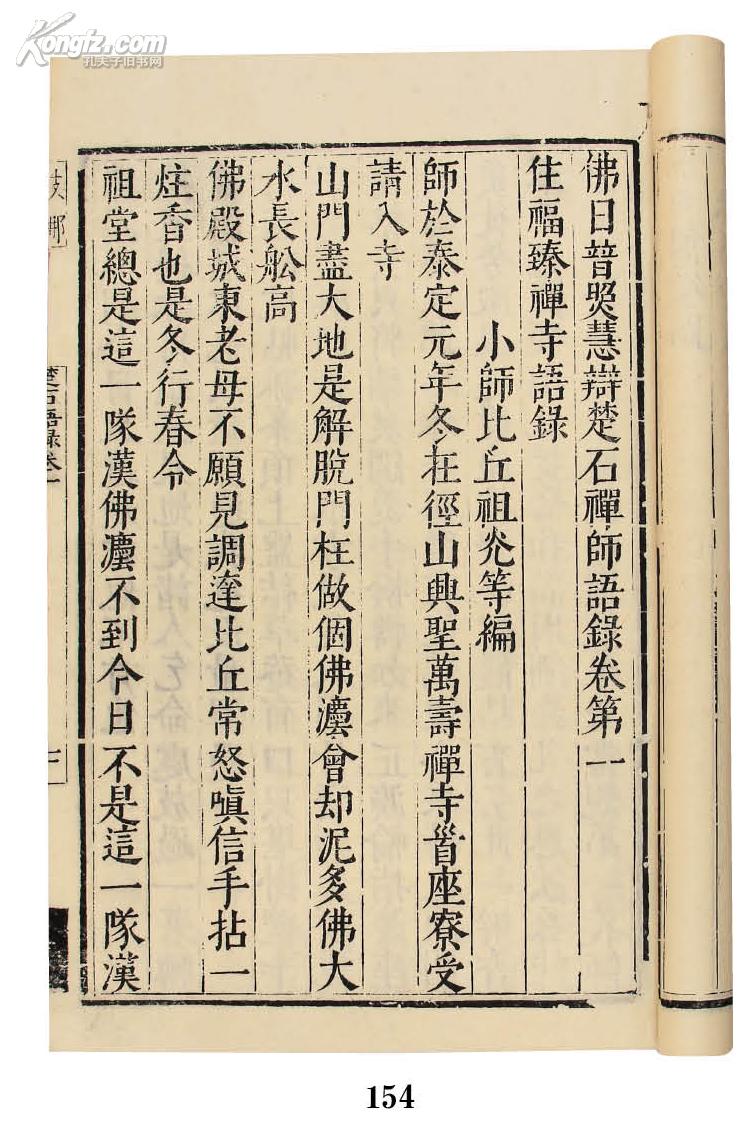 Kongfz.com
孔夫子旧书网
佛日普炤慧辯楚石禪師語錄卷第一
住福臻禪寺語錄
小師比丘祖灮等編
師於泰定元年冬在徑山興聖萬壽禪寺首座寮受
請入寺
山門盡大地是解脫門枉做個佛灋會却泥多佛大
水長舩高
佛殿城東老母不願見調達比丘常怒嗔信手拈一
炷香也是冬行春令
祖堂總是這一隊漢佛灋不到今日不是這一隊漢
楚石語錄卷一
一
154